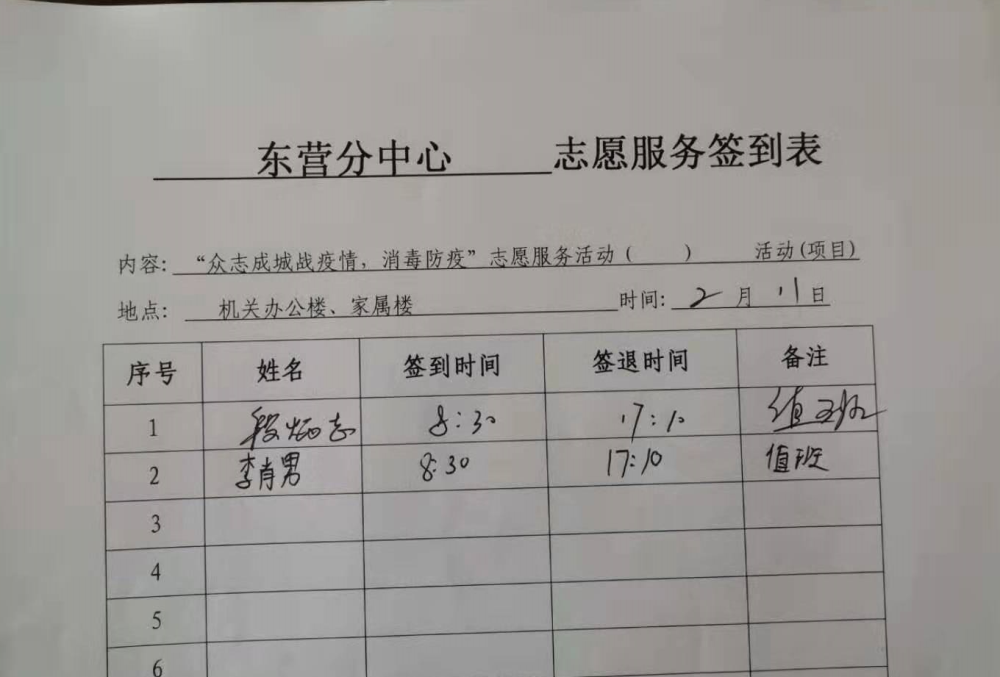 东营分中心 志愿服务签到表
内容：“众志成城战疫情，消毒防疫”志愿服务活动（ ） 活动(项目)
地点： 机关办公楼、家属楼 时间：2月11日
序号 姓名 签到时间 签退时间 备注
1 段炳志 8:30 17:10 值班
2 李肖男 8:30 17:10 值班
3
4
5
6